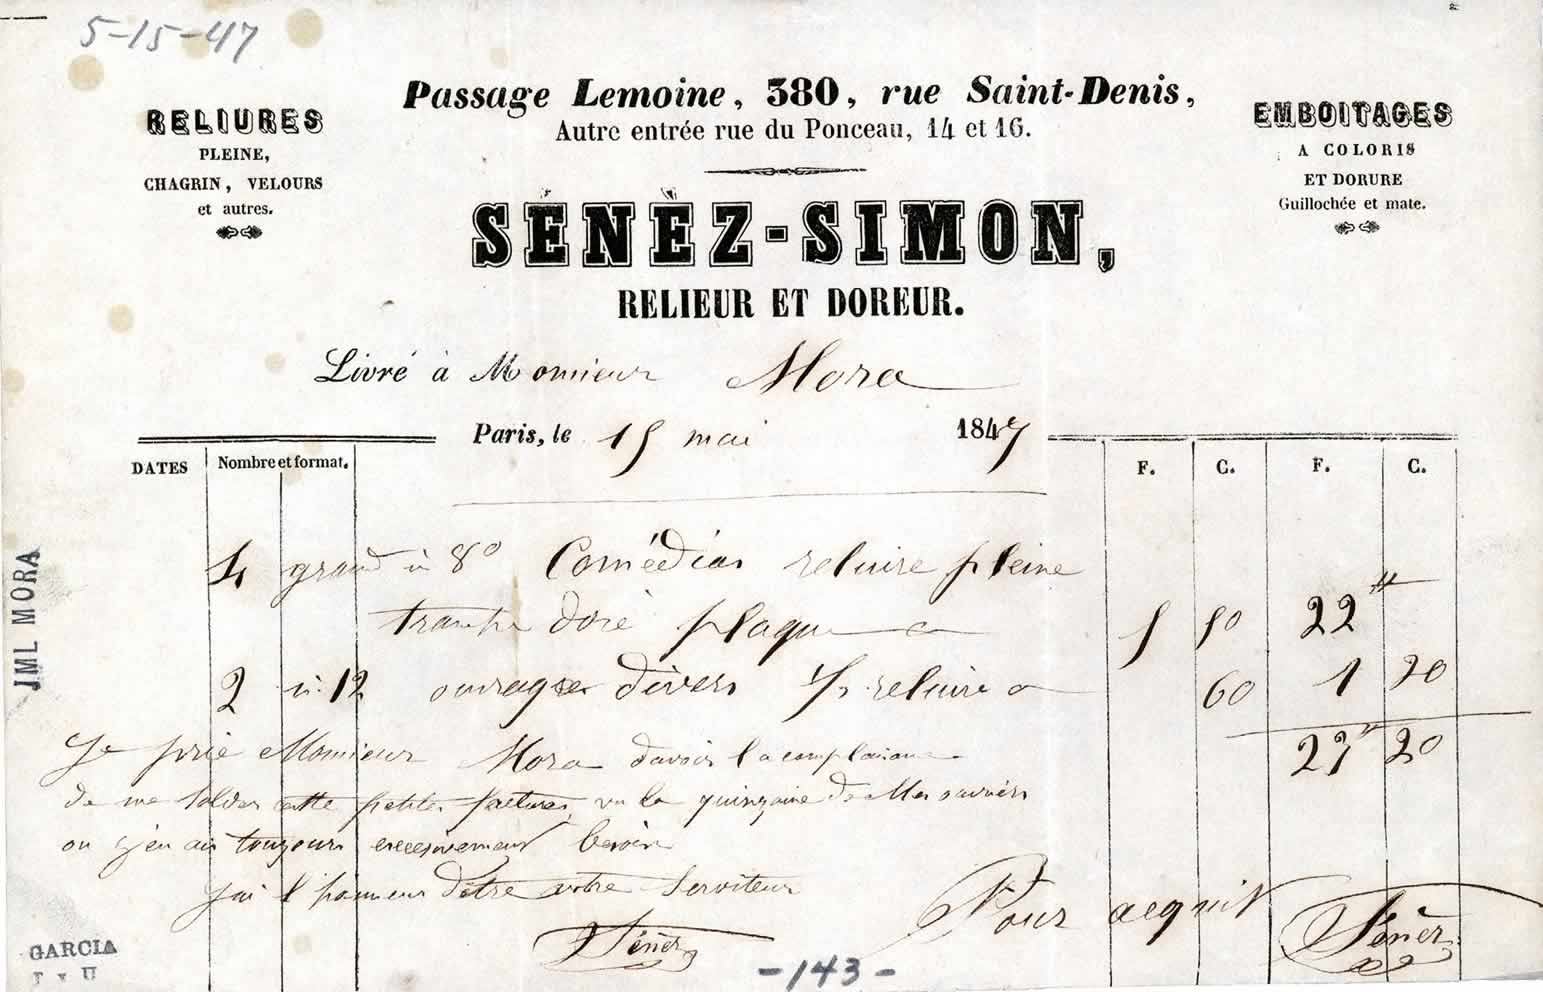 5-15-47
Passage Lemoine, 380, rue Saint-Denis,
Autre entrée rue du Ponceau, 14 et 16.
RELIURES
PLEINE,
CHAGRIN, VELOURS
et autres.
EMBOITAGES
A COLORIS
ET DORURE
Guillochée et mate.
SENEZ-SIMON,
RELIEUR ET DOREUR.
Livré à Monsieur Mora
Paris, le 15 mai 1847
DATES Nombre et format. F. C. F. C.
4 grand in 8° Comédias reluire pleine
tranche doré plaque 5 50 22 "
2 in-12 ouvrages divers reluire 60 1 20
23 20
Je prie Monsieur Mora d'avoir la complaisance
de me solder cette petite facture, vu la quinzaine de Mes ouvriers
ou j'en ai toujours excessivement besoin
j'ai l'honneur d'être votre Serviteur
Sénez
Pour acquit Sénez
JML MORA
GARCIA
-143-